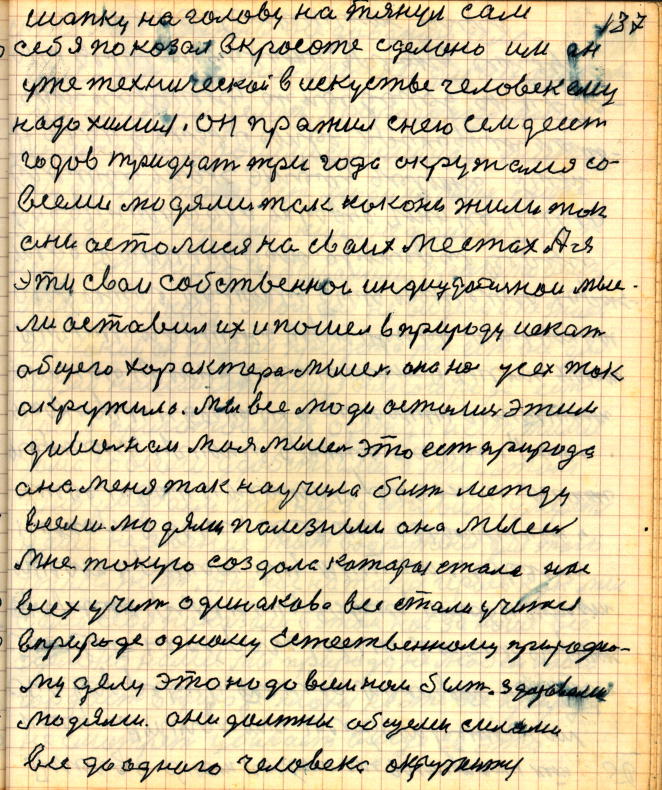 137
шапку на голову на тянул сам
себя показал вкросоте сделоно им он
уже технической вискустве человек ему
надо химия. Он пражил снею семдесят
годов тридцат три года окружался со
всеми людями так как они жили так
они астолися на сваих местах А я
эти сваи собственнои мыс-
ли аставил их и пошел вприроду искат
общего характера мысел она на усех так
акружила. мы все люди асталися этим
моя мысел это ест природа
она меня так научила быт между
всеми людями палезным она мысел
мне токую создола катарая стала нас
всех учит одинаково все стали учится
вприроде одному Естественному природно-
му делу это нодо всем нам быт. здаровыми
людями. они должны общеми силами
все доодного человека окружит